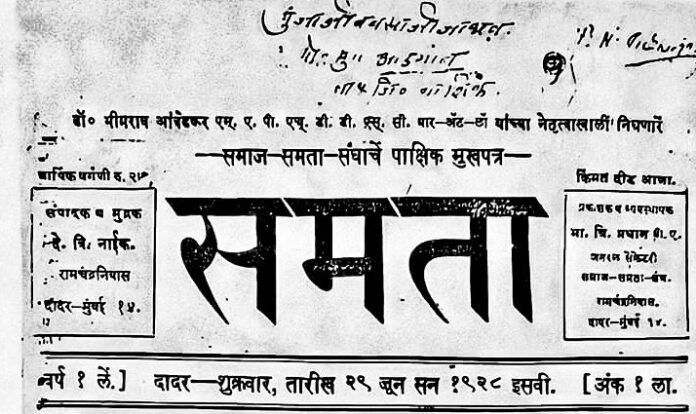 पो. मु।। आडगांव
डॉ० भीमराव आंबेडकर एम्. ए. पी. एच्. डी. डी. एस्. सी. बार–अॅट–लॉ यांच्या नेतृत्वाखालीं निघणारें
—समाज–समता–संघाचें पाक्षिक मुखपत्र—
वार्षिक वर्गणी रु.
किंमत दीड आणा.
संपादक व मुद्रक
दे. वि. नाईक.
रामचंद्रनिवास
दादर–मुंबई १४.
समता
प्रकाशक व व्यवस्थापक
भा. वि. प्रधान बी. ए.
जनरल सेक्रेटरी
समाज–समता–संघ.
रामचंद्रनिवास.
दादर–मुंबई १४.
वर्ष १ लें.] दादर—शुक्रवार, तारीख २९ जून सन १९२८ इसवी. [अंक १ ला.